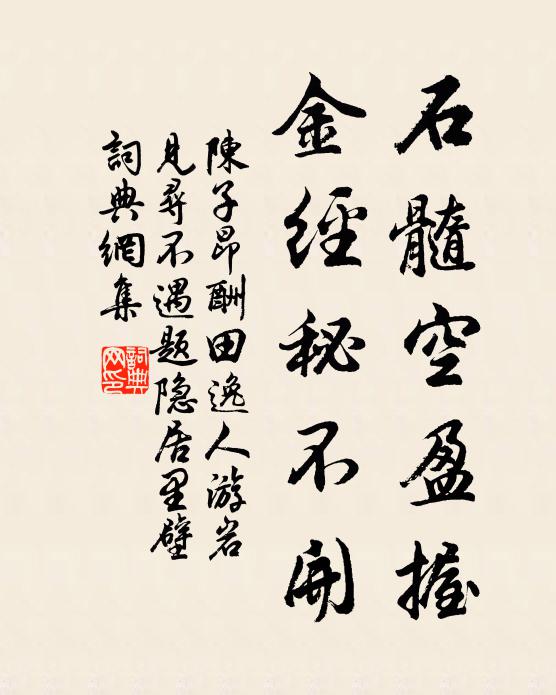 石髓空盈握
金經秘不開
陳子昂酬田逸人游岩
見尋不遇題隐居里壁
詞典網集
詞典網印